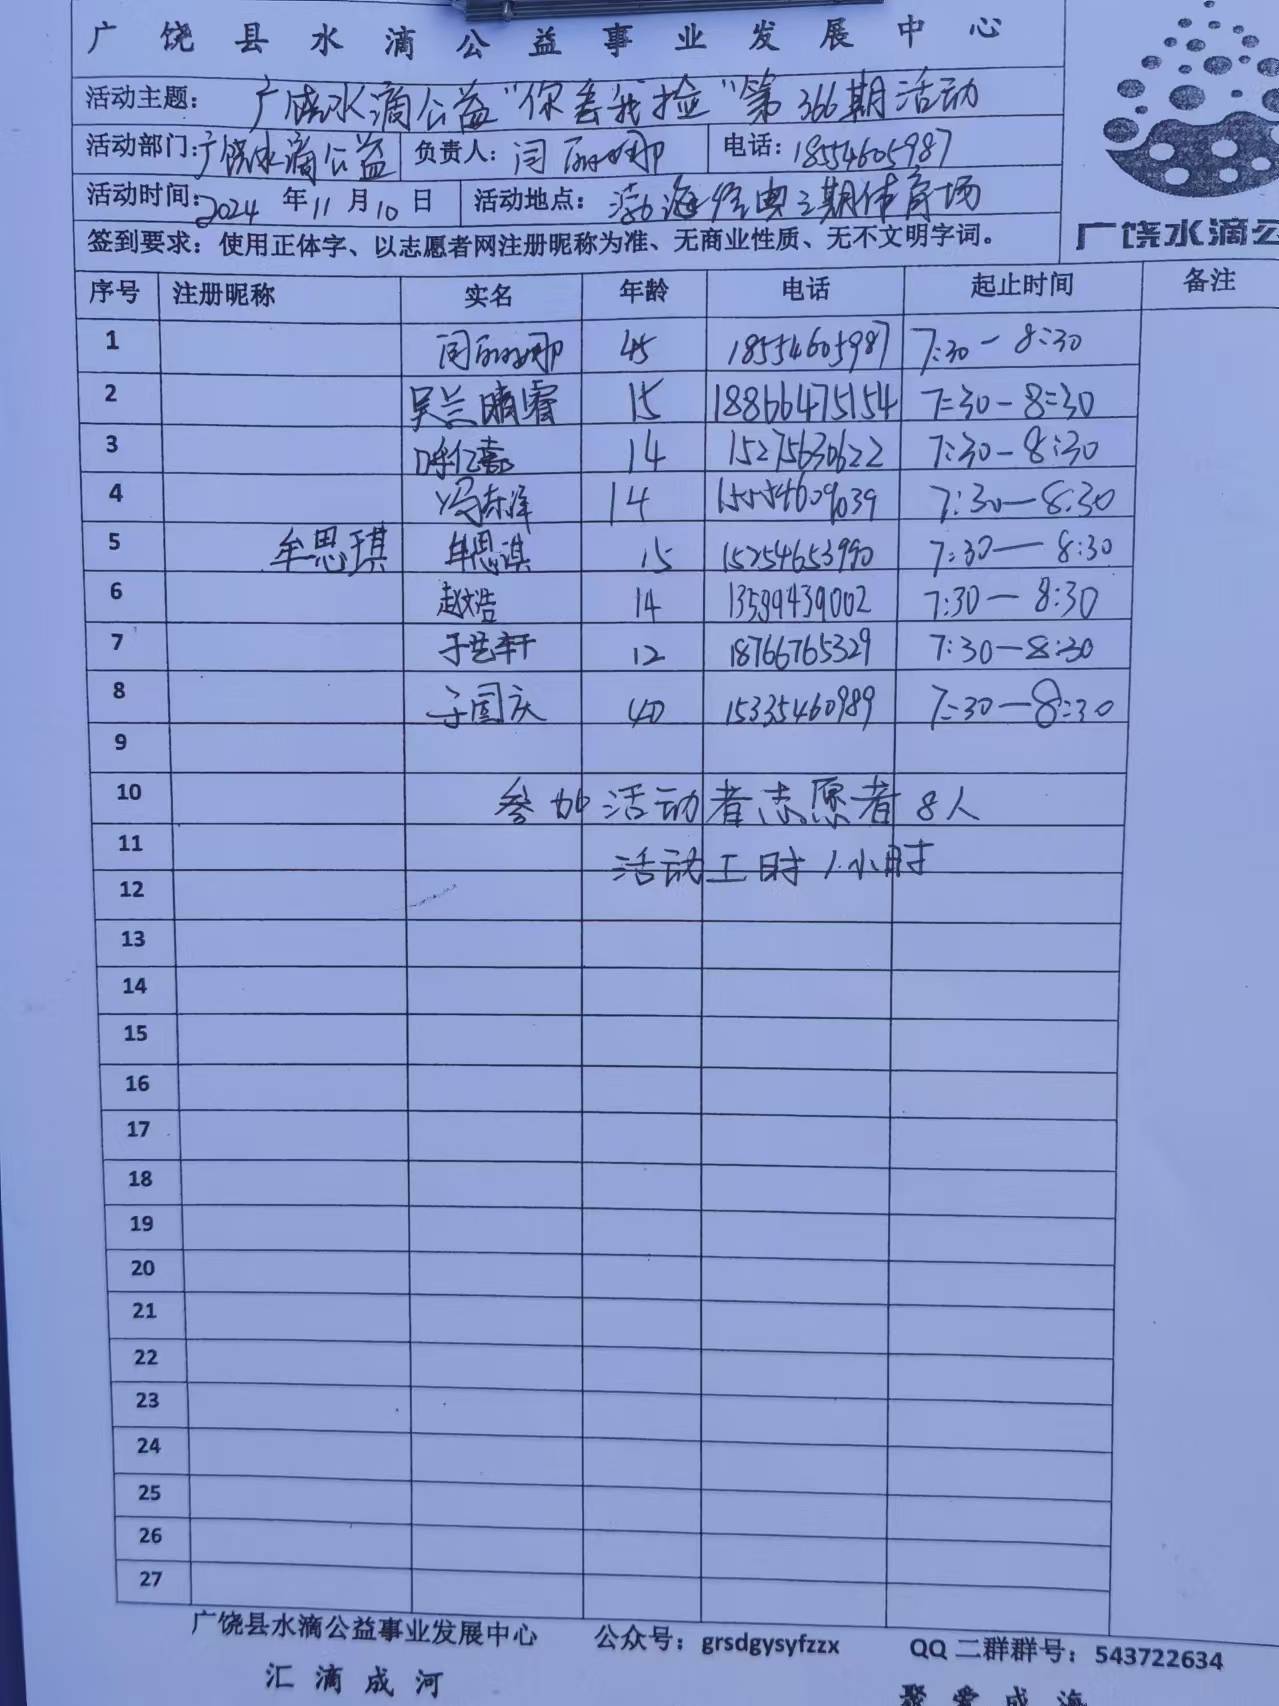 广饶县水滴公益事业发展中心
活动主题: 广饶水滴公益“你丢我捡”第366期活动
活动部门: 广饶水滴公益 负责人: 闫丽娜 电话: 18554605987
活动时间: 2024年11月10日 活动地点: 渤海经典三期体育场
广饶水滴公
签到要求: 使用正体字、以志愿者网注册昵称为准、无商业性质、无不文明字词。
序号 注册昵称 实名 年龄 电话 起止时间 备注
1 闫丽娜 45 18554605987 7:30-8:30
2 吴兰睛睿 15 18866475154 7:30-8:30
3 呼亿嘉 14 15275630622 7:30-8:30
4 冯东泽 14 15554609039 7:30-8:30
5 牟思琪 牟思淇 15 15254653990 7:30-8:30
6 赵文浩 14 13589439002 7:30-8:30
7 于艺轩 12 18766765329 7:30-8:30
8 于国庆 40 15335460989 7:30-8:30
9
10 参加活动者志愿者8人
11 活动工时1小时
12
13
14
15
16
17
18
19
20
21
22
23
24
25
26
27
广饶县水滴公益事业发展中心 公众号: grsdgysyfzzx QQ二群群号: 543722634
汇滴成河 聚爱成海